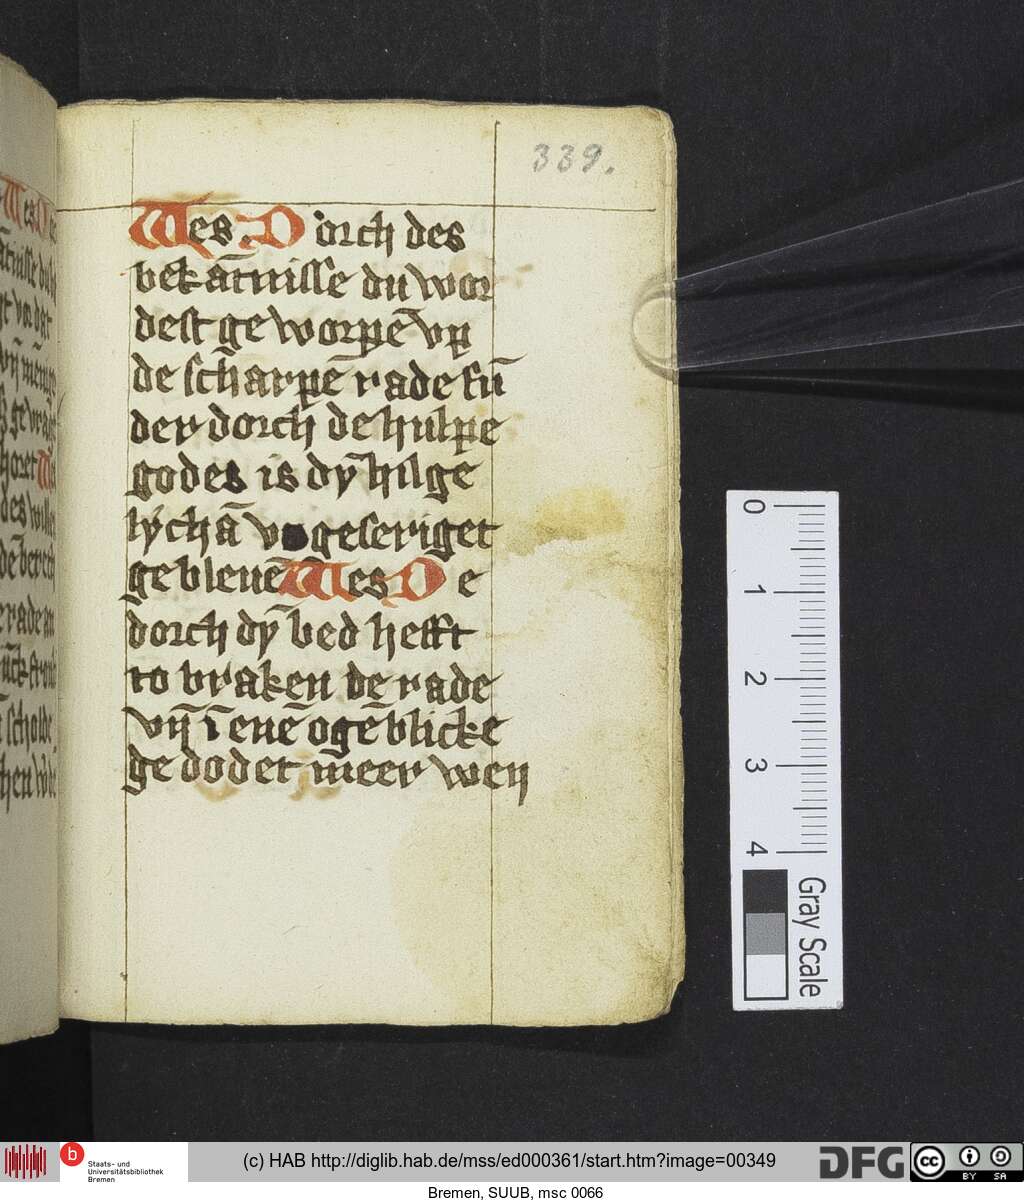 339.
Wes. D orch des
bekātnisse du wor
dest ge worpē vp
de scharpē rade sū
der dorch de hulpe
godes is dȳ hilge
lychā v geseriget
gebleuē Wes D e
dorch dȳ bed hefft
to braken dē rade
vn̄ ī enē ogēblicke
ge dodet meer wen
0
1
2
3
4
Gray Scale
b
Staats- und
Universitätsbibliothek
Bremen
(c) HAB http://diglib.hab.de/mss/ed000361/start.htm?image=00349
DFG
cc BY SA
Bremen, SUUB, msc 0066